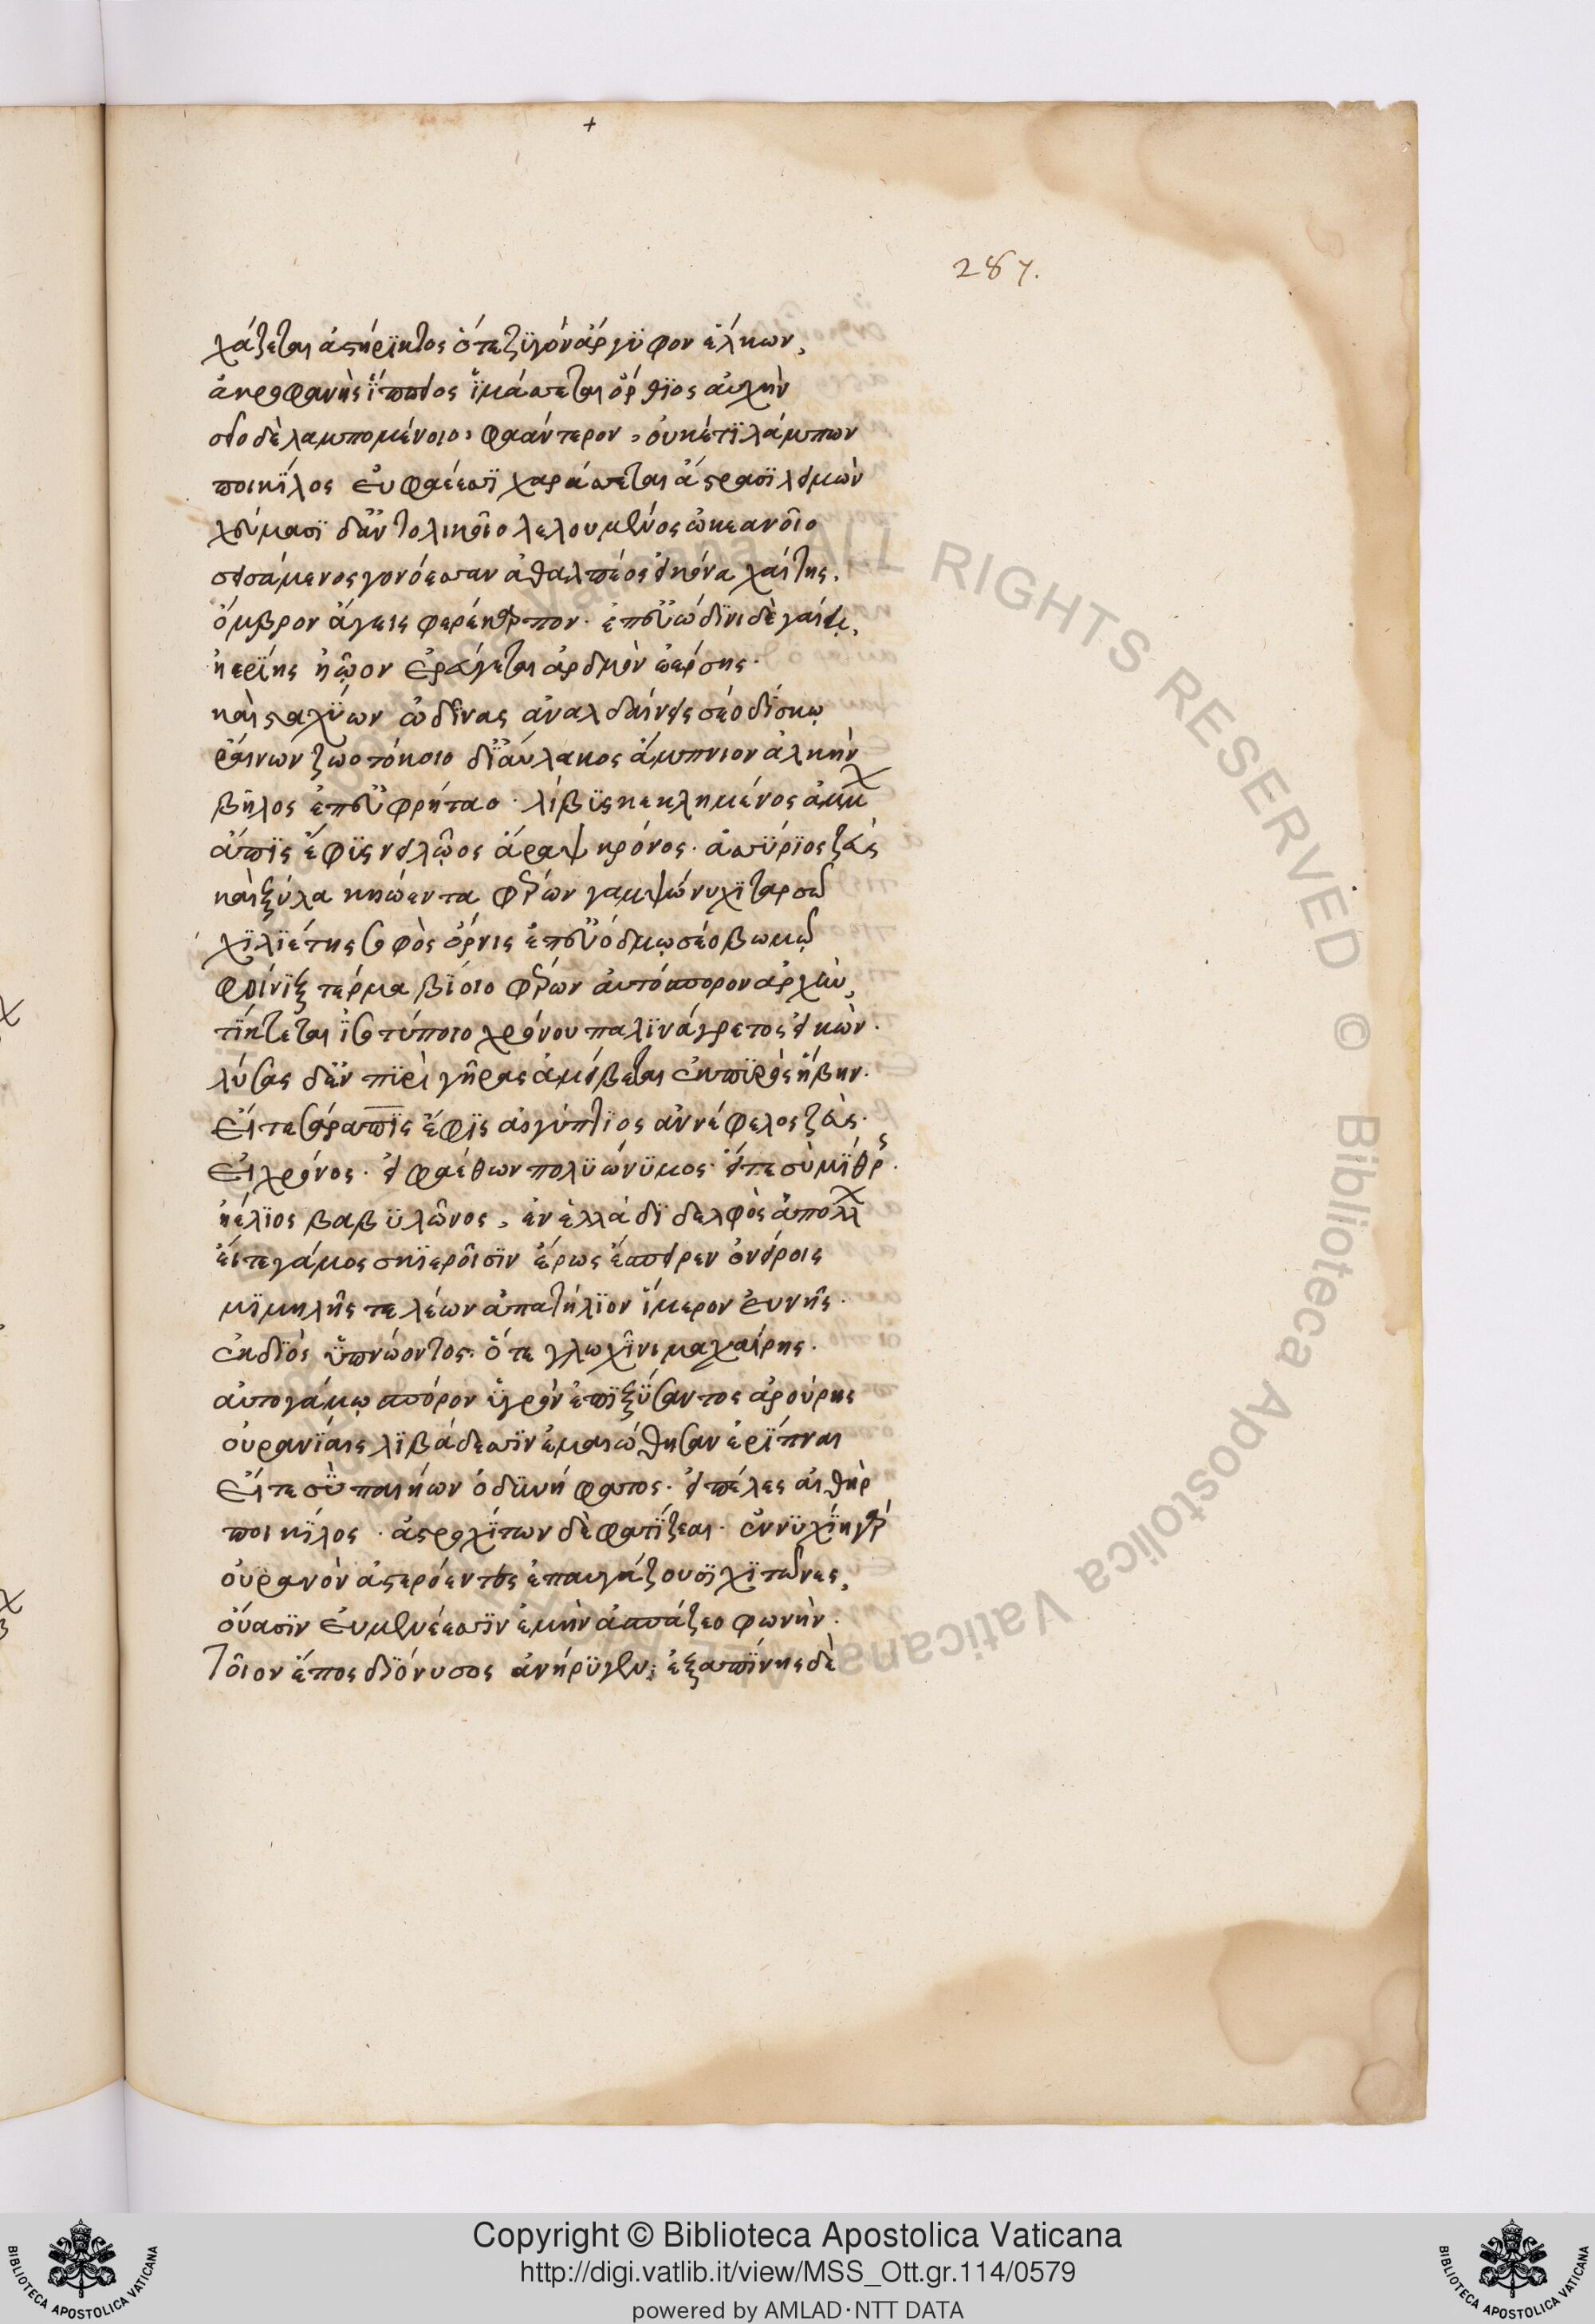 +
287.
χάζεται ἀστήρικτος ὅτε ζυγὸν ἄργυφον ἕλκων,
ἀκροφανὴς ἵπποιος ἱμάσσεται ὄρθιος αὐχὴν
σεῖο δὲ λαμπομένοιο, φαάντερον, οὐκέτι λάμπων
ποικίλος εὐφαέεσσι χαράσσεται ἄστρασι λειμὼν
χεύμασι δ' ἀντολικοῖο λελουμένος ὠκεανοῖο
σεισάμενος γονόεσσαν ἀθαλπέος εἰκόνα χαίτης.
ὄμβρον ἄγεις φερέκαρπον. ἐπ' εὐώδινι δὲ γαίῃ,
ἠερίης ἠῷον ἐρεύγεται ἀρδμὸν ἐέρσης.
καὶ σταχύων ὠδῖνας ἀναλδαίνεις σέο δίσκῳ
ῥαίνων ζωοτόκοιο δι' αὔλακος ὄμπνιον ἀλκὴν
βῆλος ἐπ' εὐφρήταο. λίβυς κεκλημένος ἄμμ
ἄπις ἔφυς νειλῷος ἄραψ κρόνος. ἀσσύριος ζεὺς
καὶ ξύλα κηώεντα φέρων γαμψώνυχι ταρσῷ
χιλιέτης σοφὸς ὄρνις ἐπ' εὐόδμῳ σέο βωμῷ
φοίνιξ τέρμα βίοιο φέρων αὐτόσπορον ἀρχὴν,
τίκτεται ἰσοτύποιο χρόνου παλινάγρετος εἰκὼν.
λύσας δ' ἐν πυρὶ γῆρας ἀμείβεται ἐκ πυρὸς ἥβην.
εἴτε σάραπις ἔφυς αἰγύπτιος ἀννέφελος ζεὺς.
εἰ χρόνος. εἰ φαέθων πολυώνυμος. εἴτε σὺ μίθρς.
ἠέλιος βαβυλῶνος, ἐν ἑλλάδι δελφὸς ἀπολλ
εἴτε γάμος σκιεροῖσιν ἔρως ἔσπειρεν ὀνείροις
μιμηλῆς τελέων ἀπατήλιον ἵμερον εὐνῆς.
ἐκ διὸς ὑπνώοντος. ὅτε γλωχῖνι μαχαίρης.
αὐτογάμῳ σπόρον ὑγρὸν ἐπιξύσαντος ἀρούρης
οὐρανίαις λιβάδεσσιν ἐμαιώθησαν ἐρίπναι
εἴτε σὺ παιήων ὀδυνήφατος. εἰ πέλες αἰθὴρ
ποικίλος. ἀστροχίτων δὲ φατίζεαι. ἐννύχιοι γὰρ
οὐρανὸν ἀστερόεντος ἐπαυγάζουσι χιτῶνες,
οὔασιν εὐμενέεσσιν ἐμὴν ἀσπάζεο φωνὴν.
Τοῖον ἔπος διόνυσος ἀνήρυγεν; ἐξαπίνης δὲ
Copyright © Biblioteca Apostolica Vaticana
http://digi.vatlib.it/view/MSS_Ott.gr.114/0579
powered by AMLAD·NTT DATA